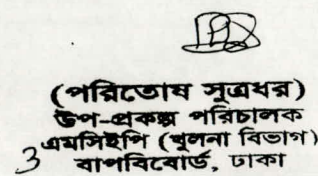 (পরিতোষ সুত্রধর)
উপ-প্রকল্প পরিচালক
এমসিইপি (খুলনা বিভাগ)
3 বাপবিবোর্ড, ঢাকা